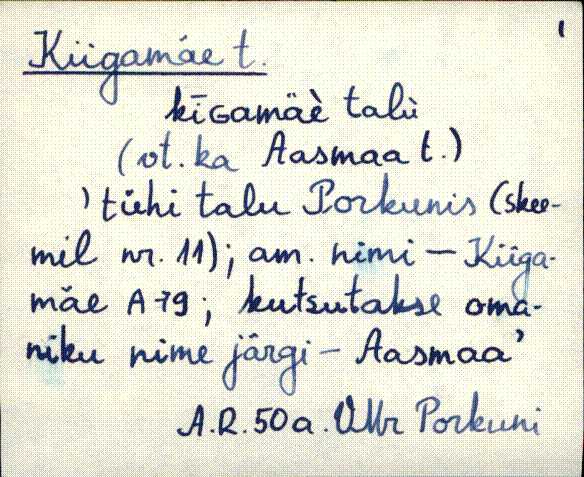 1
Kiigamäe t.
kīGamäè talù
(vt. ka Aasmaa t.)
' tühi talu Porkunis (skee-
mil nr. 11); am. nimi – Kiiga-
mäe A-79; kutsutakse oma-
niku nime järgi – Aasmaa'
A.R. 50 a. VMr Porkuni